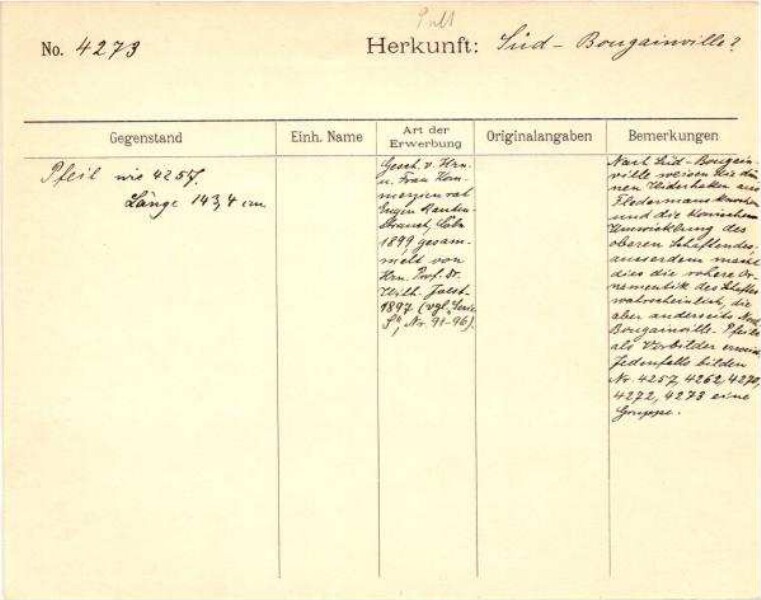 Pult
No. 4273
Herkunft: Süd - Bougainville?
Gegenstand
Einh. Name
Art der
Erwerbung
Originalangaben
Bemerkungen
Pfeil wie 4257.
Länge 143,4 cm
Gesch. v. Hrn.
u. Frau Kom-
merzienrat
Eugen Rauten-
strauch, Cöln
1899 gesam-
melt von
Hrn. Prof. Dr.
Wilh. Joest
1897 (vgl. "Serie
S", Nr. 91-96).
Nach Süd-Bougain-
ville weisen die dün-
nen Widerhaken aus
Fledermausknochen
und die konischen
Umwicklung des
oberen Schaftendes,
ausserdem macht
dies die rohere Or-
namentik des Schaftes
wahrscheinlich, die
aber anderseits Nord-
Bougainville-Pfeile
als Vorbilder
Jedenfalls bilden
Nr. 4257, 4262, 4270,
4272, 4273 eine
Gruppe.